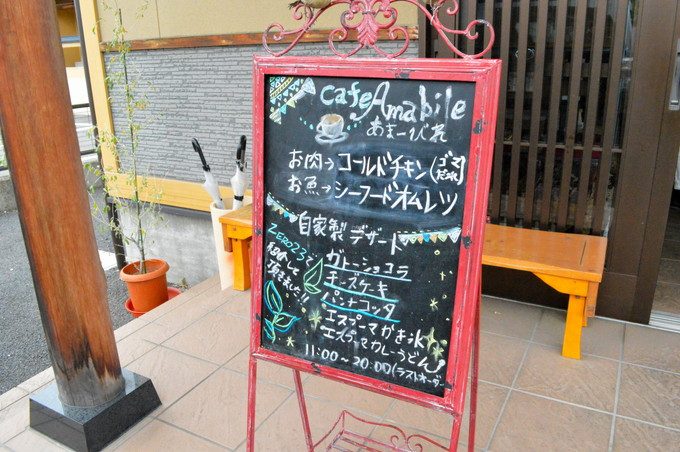 cafe Amabile
あまーびれ
お肉→コールドチキン(ゴマだれ)
お魚→シーフードオムレツ
自家製デザート
ZERO23で
紹介して
頂きました!!
ガトーショコラ
チーズケーキ
パンナコッタ
エスプーマかき氷
エスプーマカレーうどん
11:00〜20:00(ラストオーダー